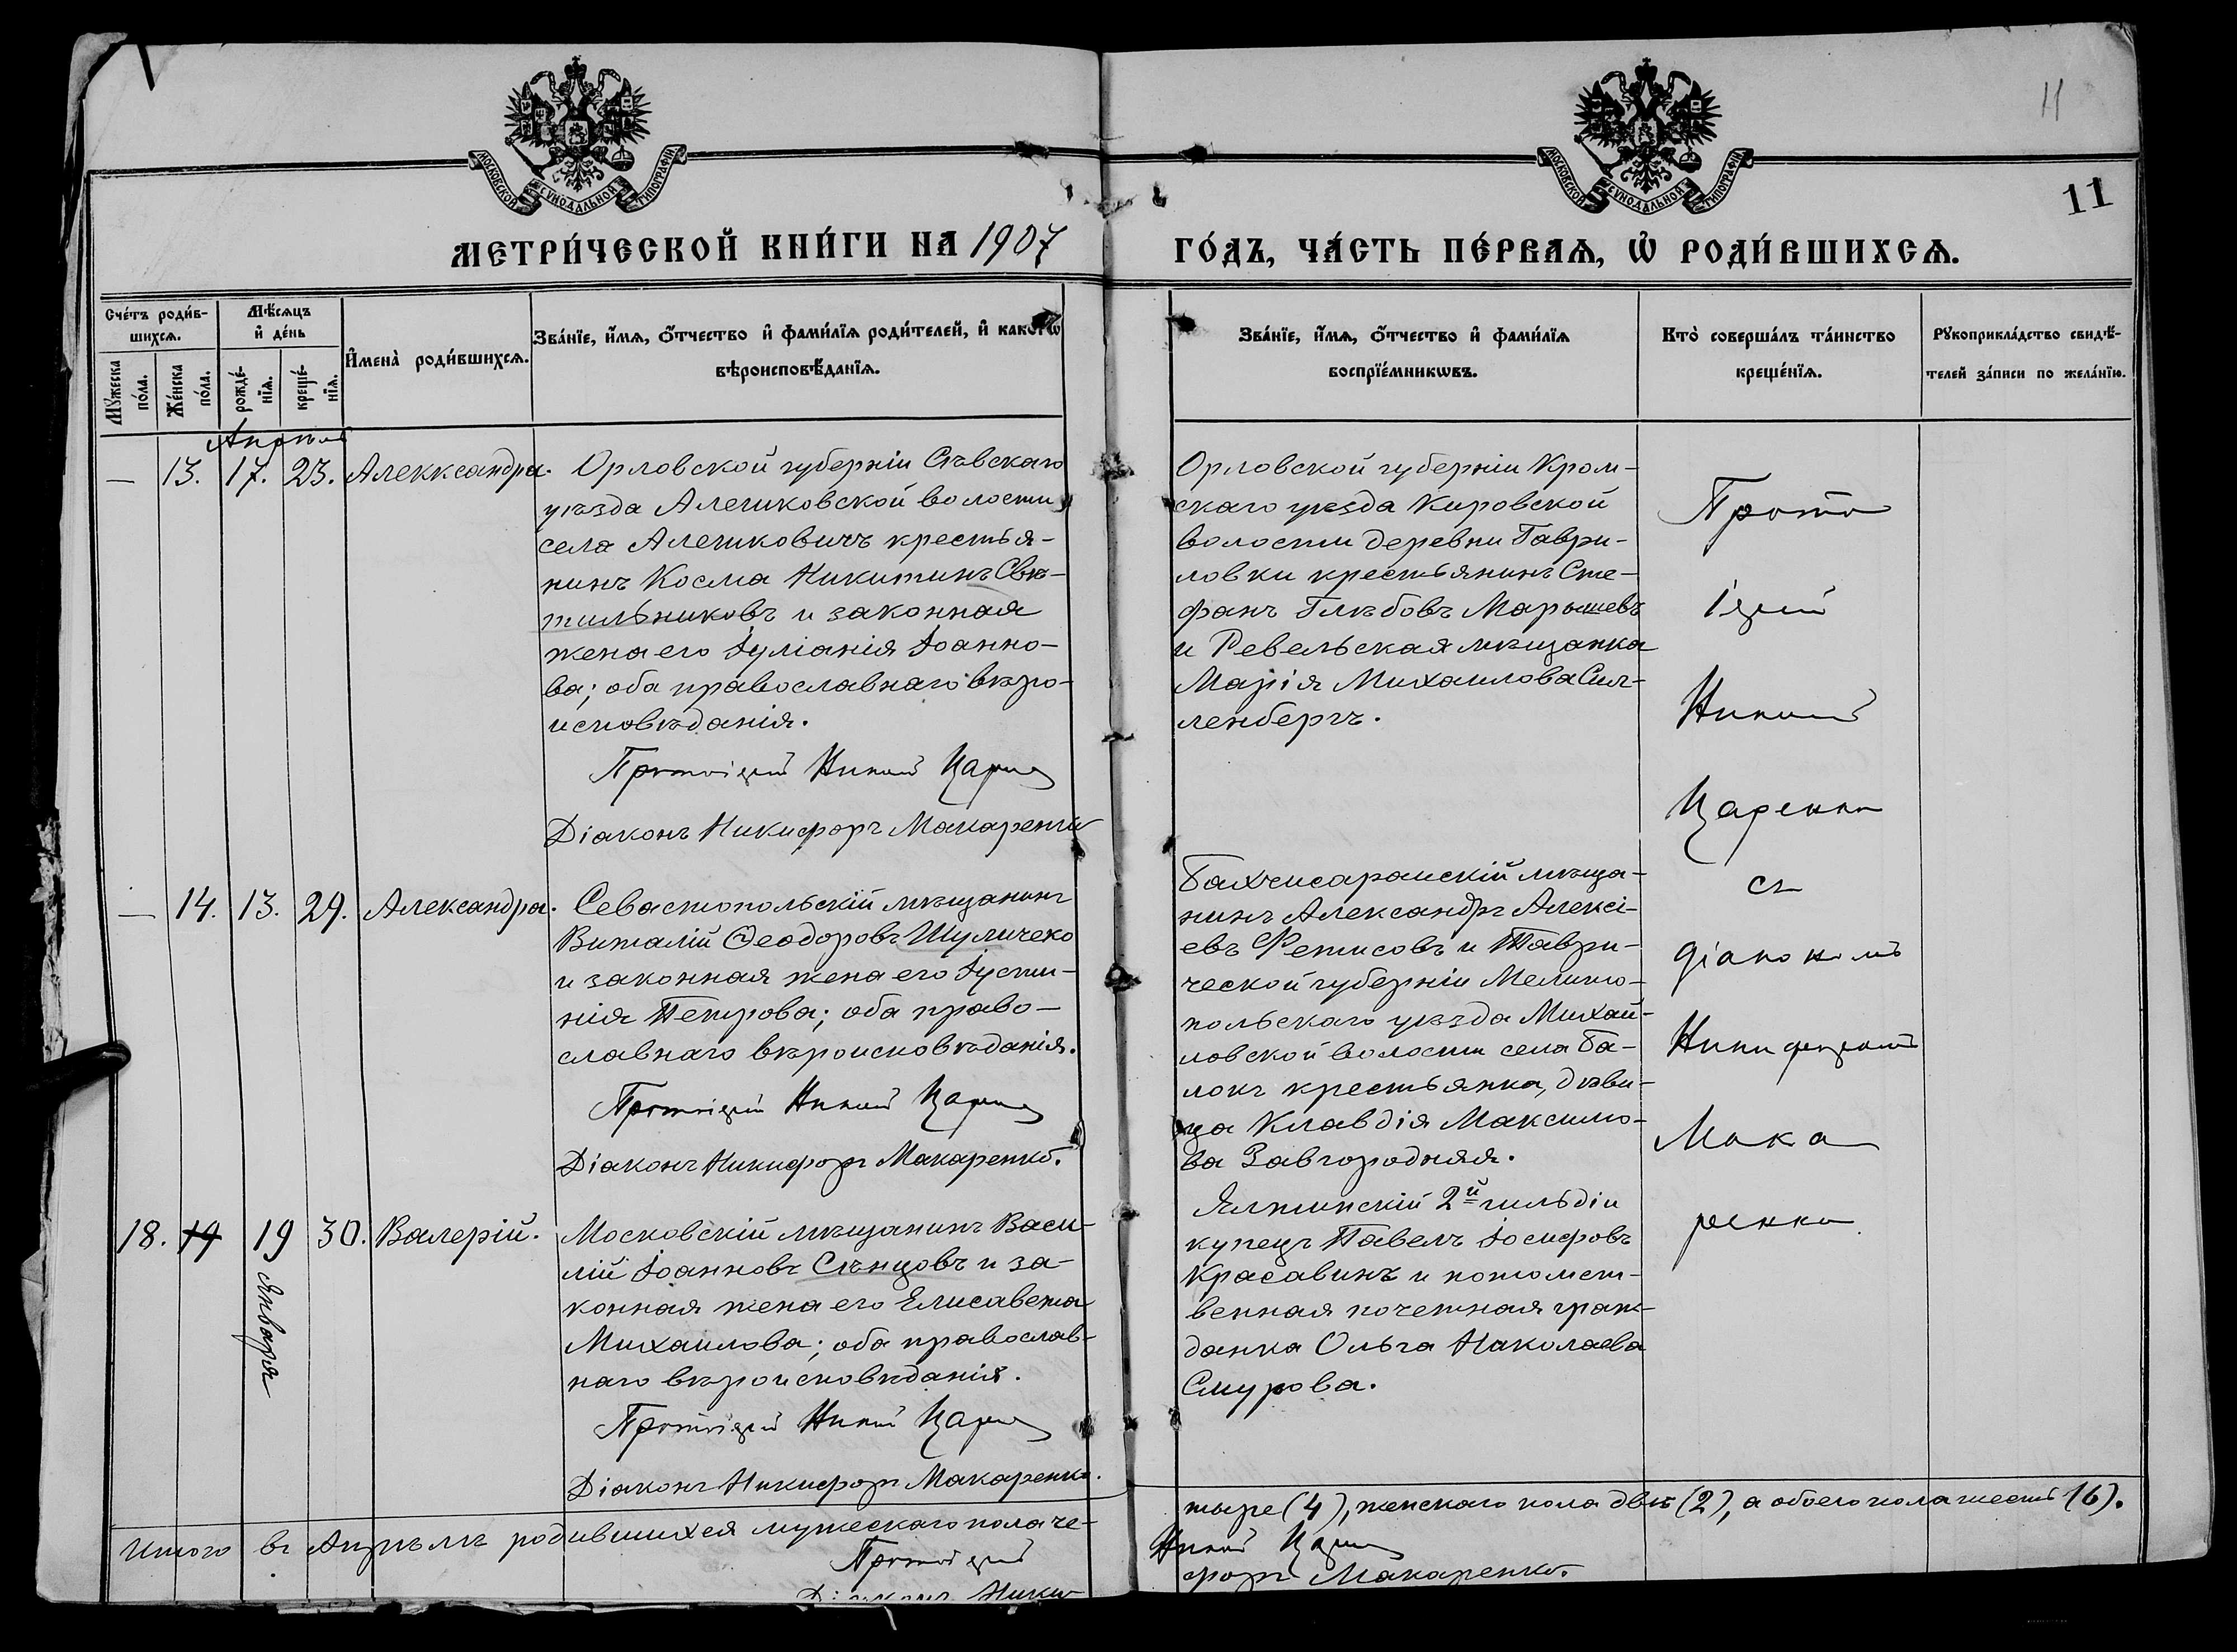 11
МОСКОВСКОЙ СѴНОДАЛЬНОЙ ТИПОГРАФІИ
МОСКОВСКОЙ СѴНОДАЛЬНОЙ ТИПОГРАФІИ
11
МЕТРИ́ЧЕСКОЙ КНИ́ГИ НА 1907
ГО́ДЪ, ЧА́СТЬ ПЕ́РВАѦ, Ѡ҆ РОДИ́ВШИХСѦ.
Сче́тъ роди́в-
шихсѧ.
Мꙋ́жеска
по́ла.
Же́нска
по́ла.
Мѣ́сѧцъ
и҆ де́нь
рожде́-
нїѧ.
креще́-
нїѧ.
И҆мена̀ роди́вшихсѧ.
Зва́нїе, и҆́мѧ, ѻ҆́тчество и҆ фами́лїѧ роди́телей, и҆ како́гѡ
вѣроисповѣ́данїѧ.
Зва́нїе, и҆́мѧ, ѻ҆́тчество и҆ фами́лїѧ
воспрїе́мникѡвъ.
Кто̀ соверша́лъ та́инство
креще́нїѧ.
Рꙋкоприкла́дство свидѣ́-
телей за́писи по жела́нїю.
Апрѣль
— 13. 17. 23. Алекксандра.
Орловской губерніи Сѣвскаго
уѣзда Алешковской волости
села Алешковичъ крестья-
нинъ Косма Никитинъ Свѣ-
тильниковъ и законная
жена его Іуліанія Іоанно-
ва; оба православнаго вѣро-
исповѣданія.
Протоіерей Никол Царен
Діаконъ Никифоръ Макаренко
Орловской губерніи Кром-
скаго уѣзда Кировской
волости деревни Гаври-
ловки крестьянинъ Сте-
фанъ Глѣбовъ Марышевъ
и Ревельская мѣщанка
Марія Михаилова Сил-
ленбергъ.
Прото
іерей
Николай
Царенко
съ
діакономъ
Никифоромъ
Мака
ренко
— 14. 13. 29. Александра.
Севастопольскій мѣщанинъ
Виталій Ѳеодоровъ Шуличеко
и законная жена его Іусти-
нія Петрова; оба право-
славнаго вѣроисповѣданія.
Протоіерей Никол Царен
Діаконъ Никифоръ Макаренко.
Бахчисарайскій мѣща-
нинъ Александръ Алексі-
евъ Фетисовъ и Таври-
ческой губерніи Мелито-
польскаго уѣзда Михай-
ловской волости села Ба-
локъ крестьянка, дѣви-
ца Клавдія Максимо-
ва Завгородняя.
18. 14 19 января 30. Валерій.
Московскій мѣщанинъ Васи-
лій Іоанновъ Слѣнцовъ и за-
конная жена его Елисавета
Михаилова; оба православ-
наго вѣроисповѣданія.
Протоіерей Никол Царен
Діаконъ Никифоръ Макаренко.
Ялтинскій 2й гильдіи
купецъ Павелъ Іосифовъ
Красавинъ и потомст-
венная почетная граж-
данка Ольга Николаева
Смурова.
Итого въ Апрѣлѣ родившихся мужескаго пола че-
тыре (4), женскаго пола двѣ (2), а обоего пола шесть (6).
Протоіерей Никол Царен
Діаконъ Никифоръ Макаренко.